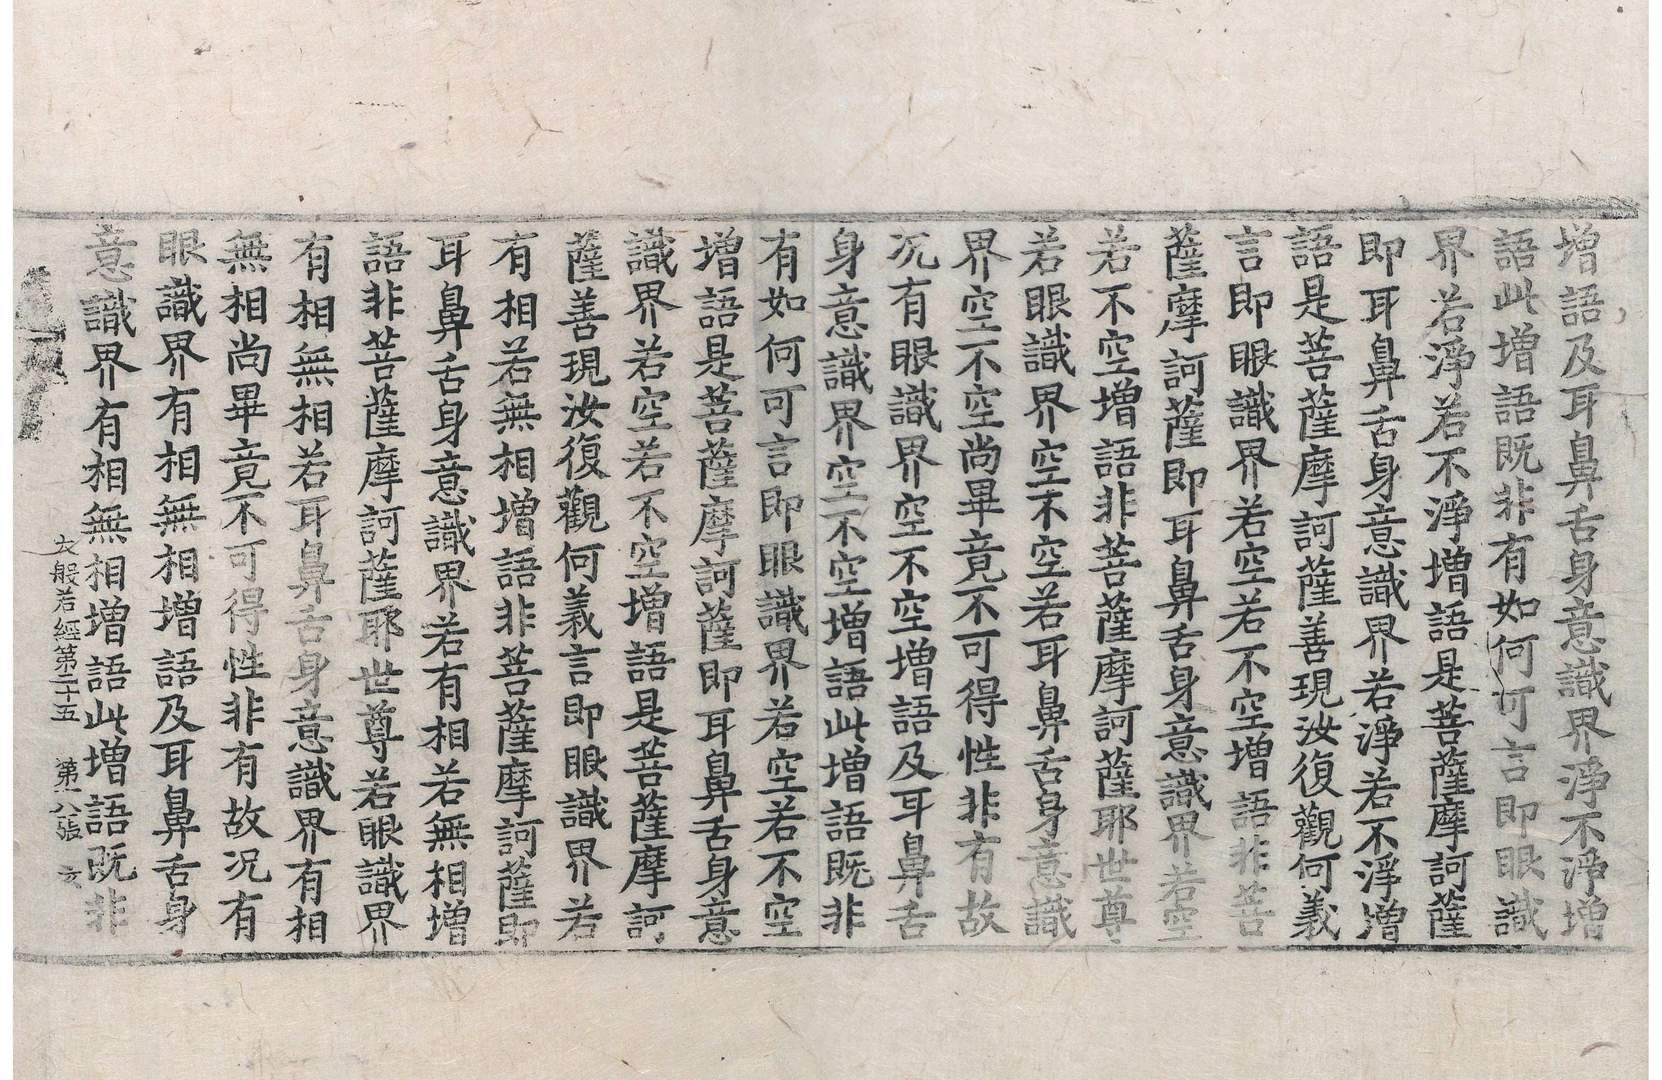 增語及耳鼻舌身意識界淨不淨增
語此增語既非有如何可言即眼識
界若淨若不淨增語是菩薩摩訶薩
即耳鼻舌身意識界若淨若不淨增
語是菩薩摩訶薩善現汝復觀何義
言即眼識界若空若不空增語非菩
薩摩訶薩即耳鼻舌身意識界若空
若不空增語非菩薩摩訶薩耶世尊
若眼識界空不空若耳鼻舌身意識
界空不空尚畢竟不可得性非有故
況有眼識界空不空增語及耳鼻舌
身意識界空不空增語此增語既非
有如何可言即眼識界若空若不空
增語是菩薩摩訶薩即耳鼻舌身意
識界若空若不空增語是菩薩摩訶
薩善現汝復觀何義言即眼識界若
有相若無相增語非菩薩摩訶薩即
耳鼻舌身意識界若有相若無相增
語非菩薩摩訶薩耶世尊若眼識界
有相無相若耳鼻舌身意識界有相
無相尚畢竟不可得性非有故況有
眼識界有相無相增語及耳鼻舌身
意識界有相無相增語此增語既非
大般若經第二十五 第十八張 亥